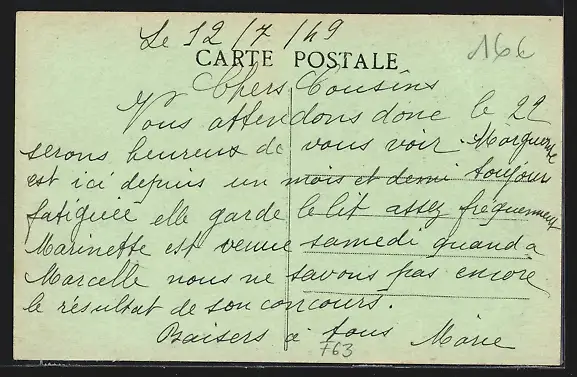 Le 12/7/49
16€
CARTE POSTALE
Chers Cousins
Vous attendons donc le 22
serons heureux de vous voir. Marguerite
est ici depuis un mois et demi toujours
fatiguée elle garde le lit assez fréquemment
Marinette est venue samedi quand a
Marcelle nous ne savons pas encore
le résultat de son concours.
Baisers à tous Marie
F63